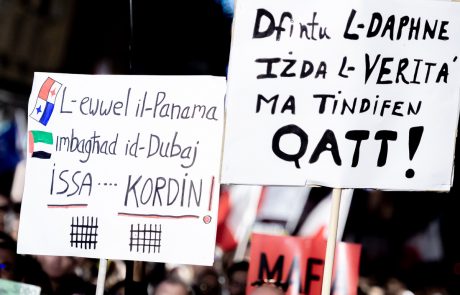 L-ewwel il-Panama
imbagħad id-Dubaj
ISSA.... KORDIN!
Dfintu L-DAPHNE
IŻDA L-VERITA'
MA TINDIFEN
QATT!
MAF